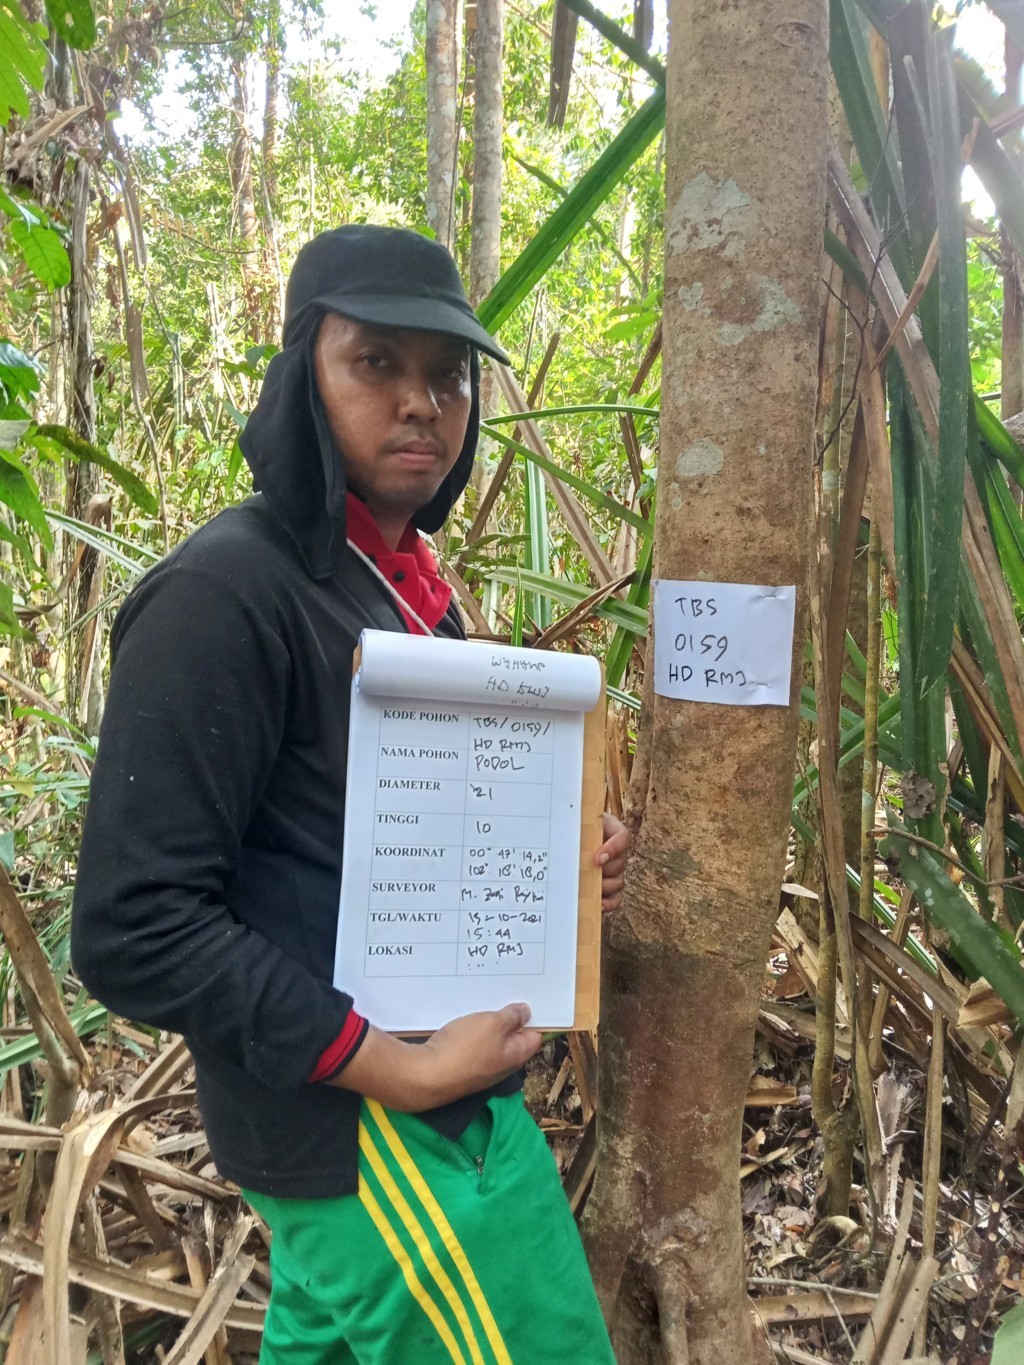 TBS
0159
HD RMJ
KODE POHON TBS/0159/
HD RMJ
NAMA POHON PODOL
DIAMETER 21
TINGGI 10
KOORDINAT 00° 47' 14,2"
102° 18' 18,0"
SURVEYOR M.
TGL/WAKTU 19-10-2021
15:44
LOKASI HD RMJ